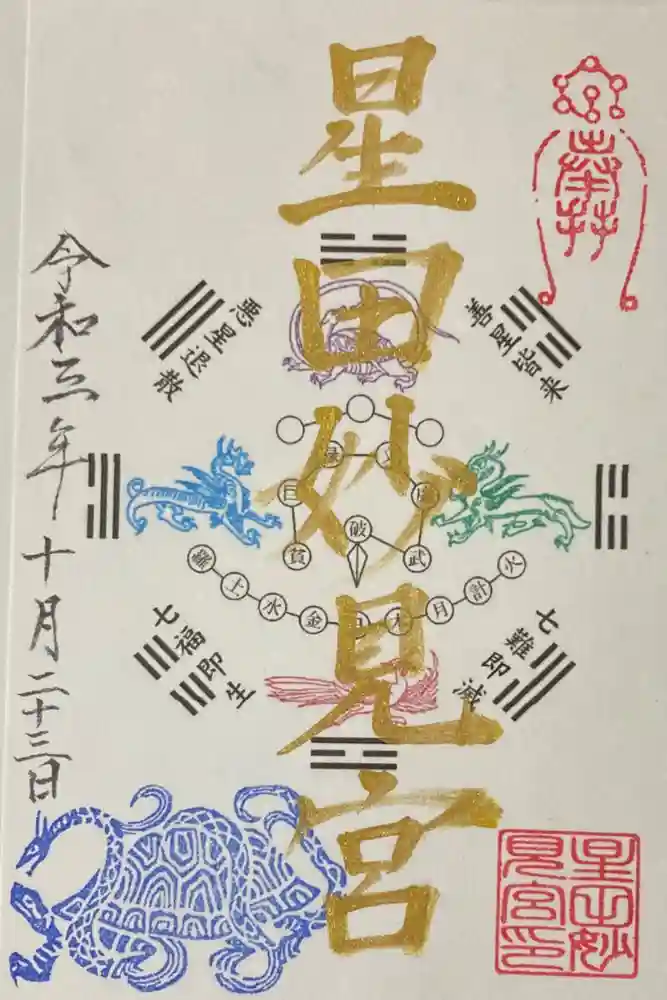 奉拝
星田妙見宮
善星皆来
悪星退散
禄
巨
廉
貪
破
武
羅土水金木月計火
七難即滅
七福即生
令和三年十月二十三日
星田妙見宮印